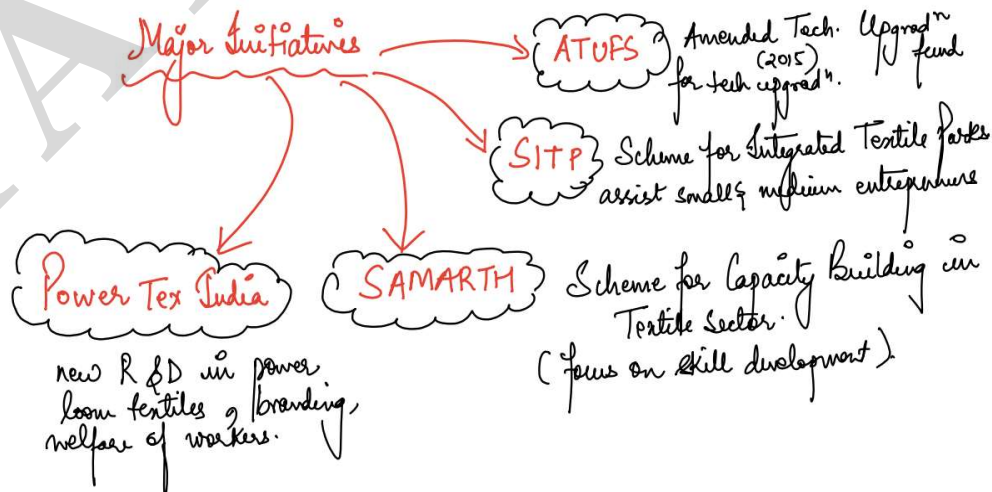 Major Initiatives
ATUFS
Amended Tech. Upgradⁿ fund
(2015)
for tech upgradⁿ.
SITP
Scheme for Integrated Textile Parks
assist small & medium entrepreneurs
Power Tex India
new R &D in power
loom textiles, branding,
welfare of workers.
SAMARTH
Scheme for Capacity Building in
Textile Sector.
(focus on skill development).